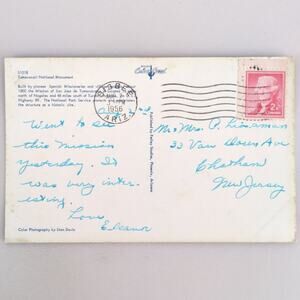 51018
Tumacacori National Monument
Built by pioneer Spanish Missionaries and
1800 the Mission of San Jose de Tumacacori
north of Nogales and 48 miles south of Tucson
Highway 89. The National Park Service
structure as a historic
BISBEE
1956
ARIZ.
2¢
Went to see
this Mission
yesterday. It
was very inter-
esting.
Love,
Eleanor
Mr. & Mrs. P.
33 Van Ave
Chatham
New Jersey
Color Photography by
Published by Petley Studios, Phoenix, Arizona